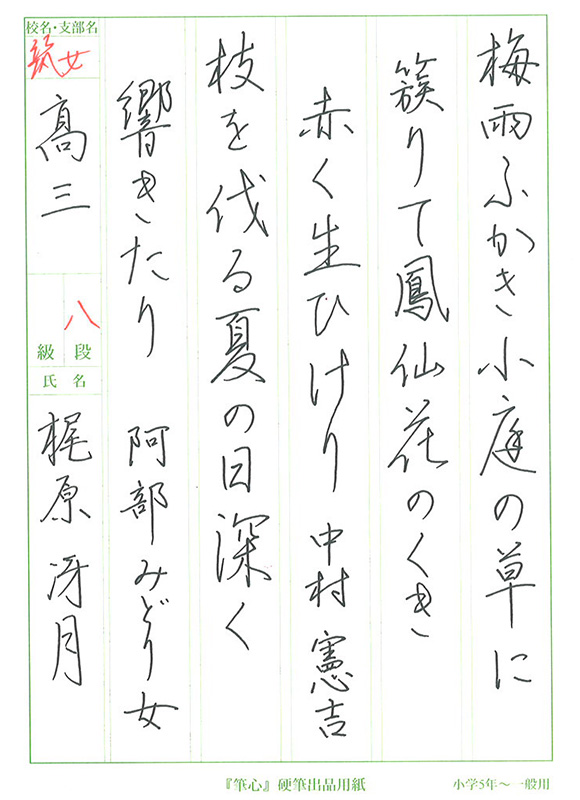 梅雨ふかき小庭の草に
簇りて鳳仙花のくき
赤く生ひけり 中村憲吉
枝を伐る夏の日深く
響きたり 阿部みどり女
校名・支部名
筑女
高三
八
級 段
氏 名
梶原 冴月
『筆心』硬筆出品用紙
小学5年〜一般用